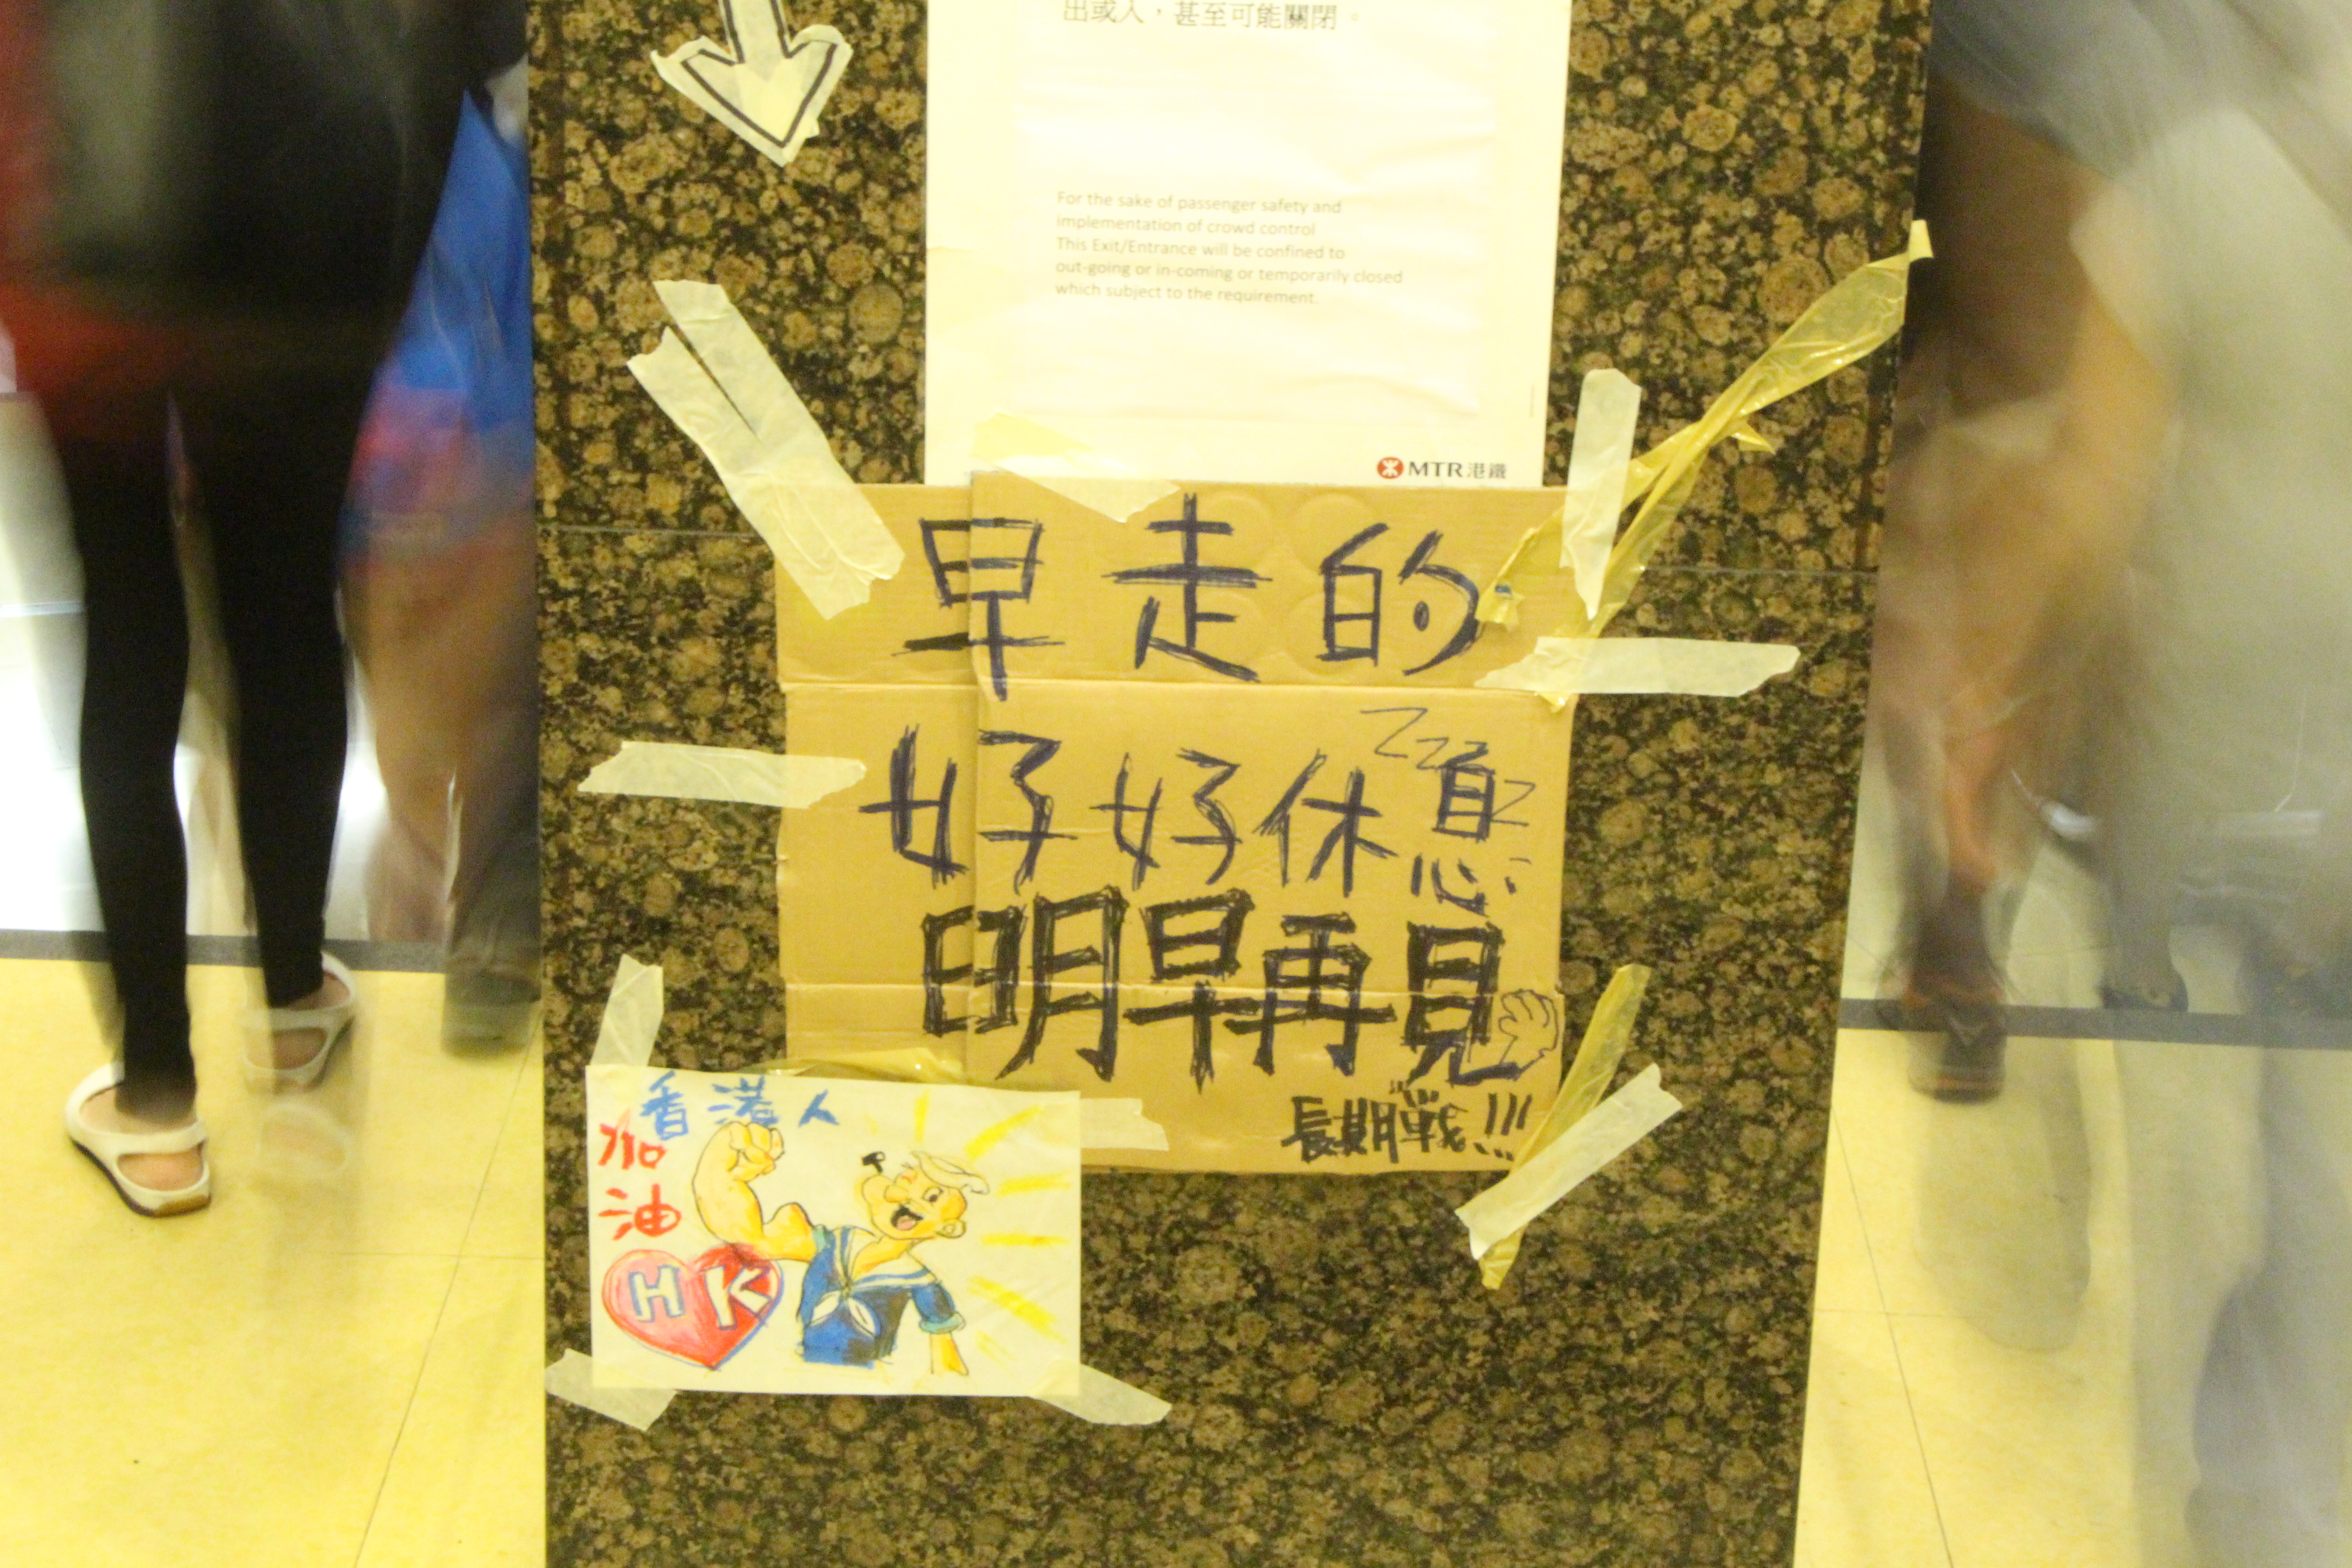 出或入，甚至可能關閉。
For the sake of passenger safety and
implementation of crowd control
This Exit/Entrance will be confined to
out-going or in-coming or temporarily closed
which subject to the requirement.
MTR 港鐵
早走的
好好休息
zzzzz
明早再見
長期戰!!!
香港人
加
油
HK